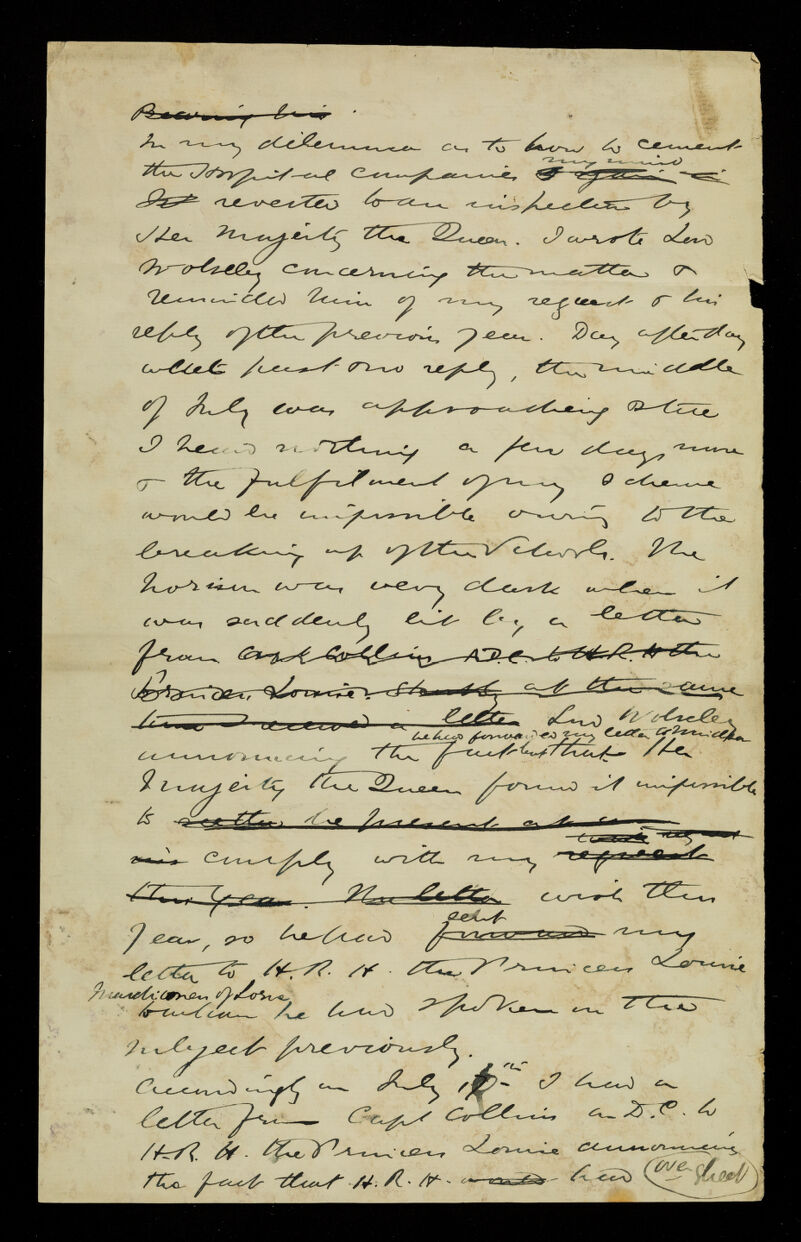 Bearing his
In my dilemma as to how to cement
my mind
the Hospital companies
reverted to an inspection by
Her Majesty the Queen. I wrote Lord
Wolseley concerning the matter &
reminded him of my request & his
reply of the previous year. Day after day
past & no reply, the middle
of July was approaching & still
I heard nothing a few days more
& the fulfilment of my scheme
would be impossible owing to the
breaking up of the Schools. The
horison was very dark when it
was suddenly lit by a letter
from Capt Collins A.D.C. to H.R.H the
Princess Louise. Shortly at the same
time I received a letter Lord Wolseley
he had forwarded my letter
announcing the fact but that Her
Majesty the Queen found it impossible
to be present at
comply with my request
this year. The letter wish this
sent
year, so he had forwarded my
letter to H.R.H. the Princess Louise
Marchioness of Lorne
to whom he had spoken on the
subject previously.
Accordingly on July I had a
letter from Capt Collins to
H.R.H. the Princess Louise announcing
the fact that H.R.H. would had over sheet